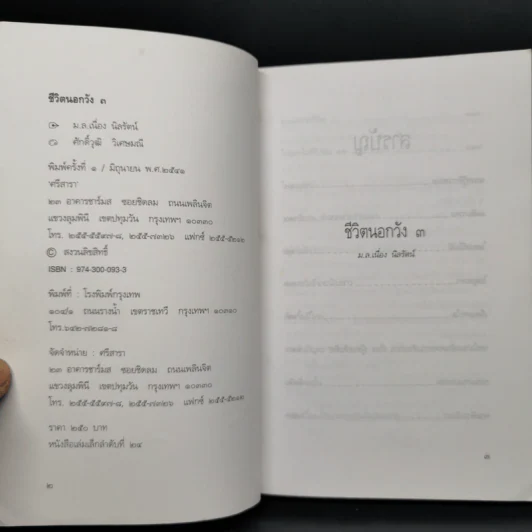 ชีวิตนอกวัง ๓
ม.ล.เนื่อง นิลรัตน์
ศักดิ์วุฒิ วิเศษมณี
พิมพ์ครั้งที่ ๑ / มิถุนายน พ.ศ.๒๕๔๑
ศรีสารา
๒๓ อาคารชาร์มส ซอยชิดลม ถนนเพลินจิต
แขวงลุมพินี เขตปทุมวัน กรุงเทพฯ ๑๐๓๓๐
โทร. ๒๕๕-๕๕๙๗-๘, ๒๕๕-๗๓๒๖ แฟกซ์
© สงวนลิขสิทธิ์
ISBN : 974-300-093-3
พิมพ์ที่ : โรงพิมพ์กรุงเทพ
๑๐๘/๑ ถนนรางน้ำ เขตราชเทวี กรุงเทพฯ ๑๐๓๑๐
โทร.๖๔๒-๗๒๘๑-๘
จัดจำหน่าย : ศรีสารา
๒๓ อาคารชาร์มส ซอยชิดลม ถนนเพลินจิต
แขวงลุมพินี เขตปทุมวัน กรุงเทพฯ ๑๐๓๓๐
โทร. ๒๕๕-๕๕๙๗-๘, ๒๕๕-๗๓๒๖ แฟกซ์
ราคา ๒๕๐ บาท
หนังสือเล่มเล็กลำดับที่ ๒๔
๒
ชีวิตนอกวัง ๓
ม.ล.เนื่อง นิลรัตน์
๓